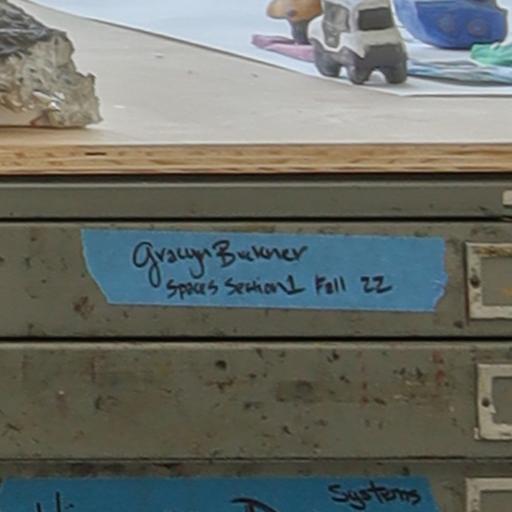 Gracyn Buckner
Spaces Section 1 Fall 22
Systems